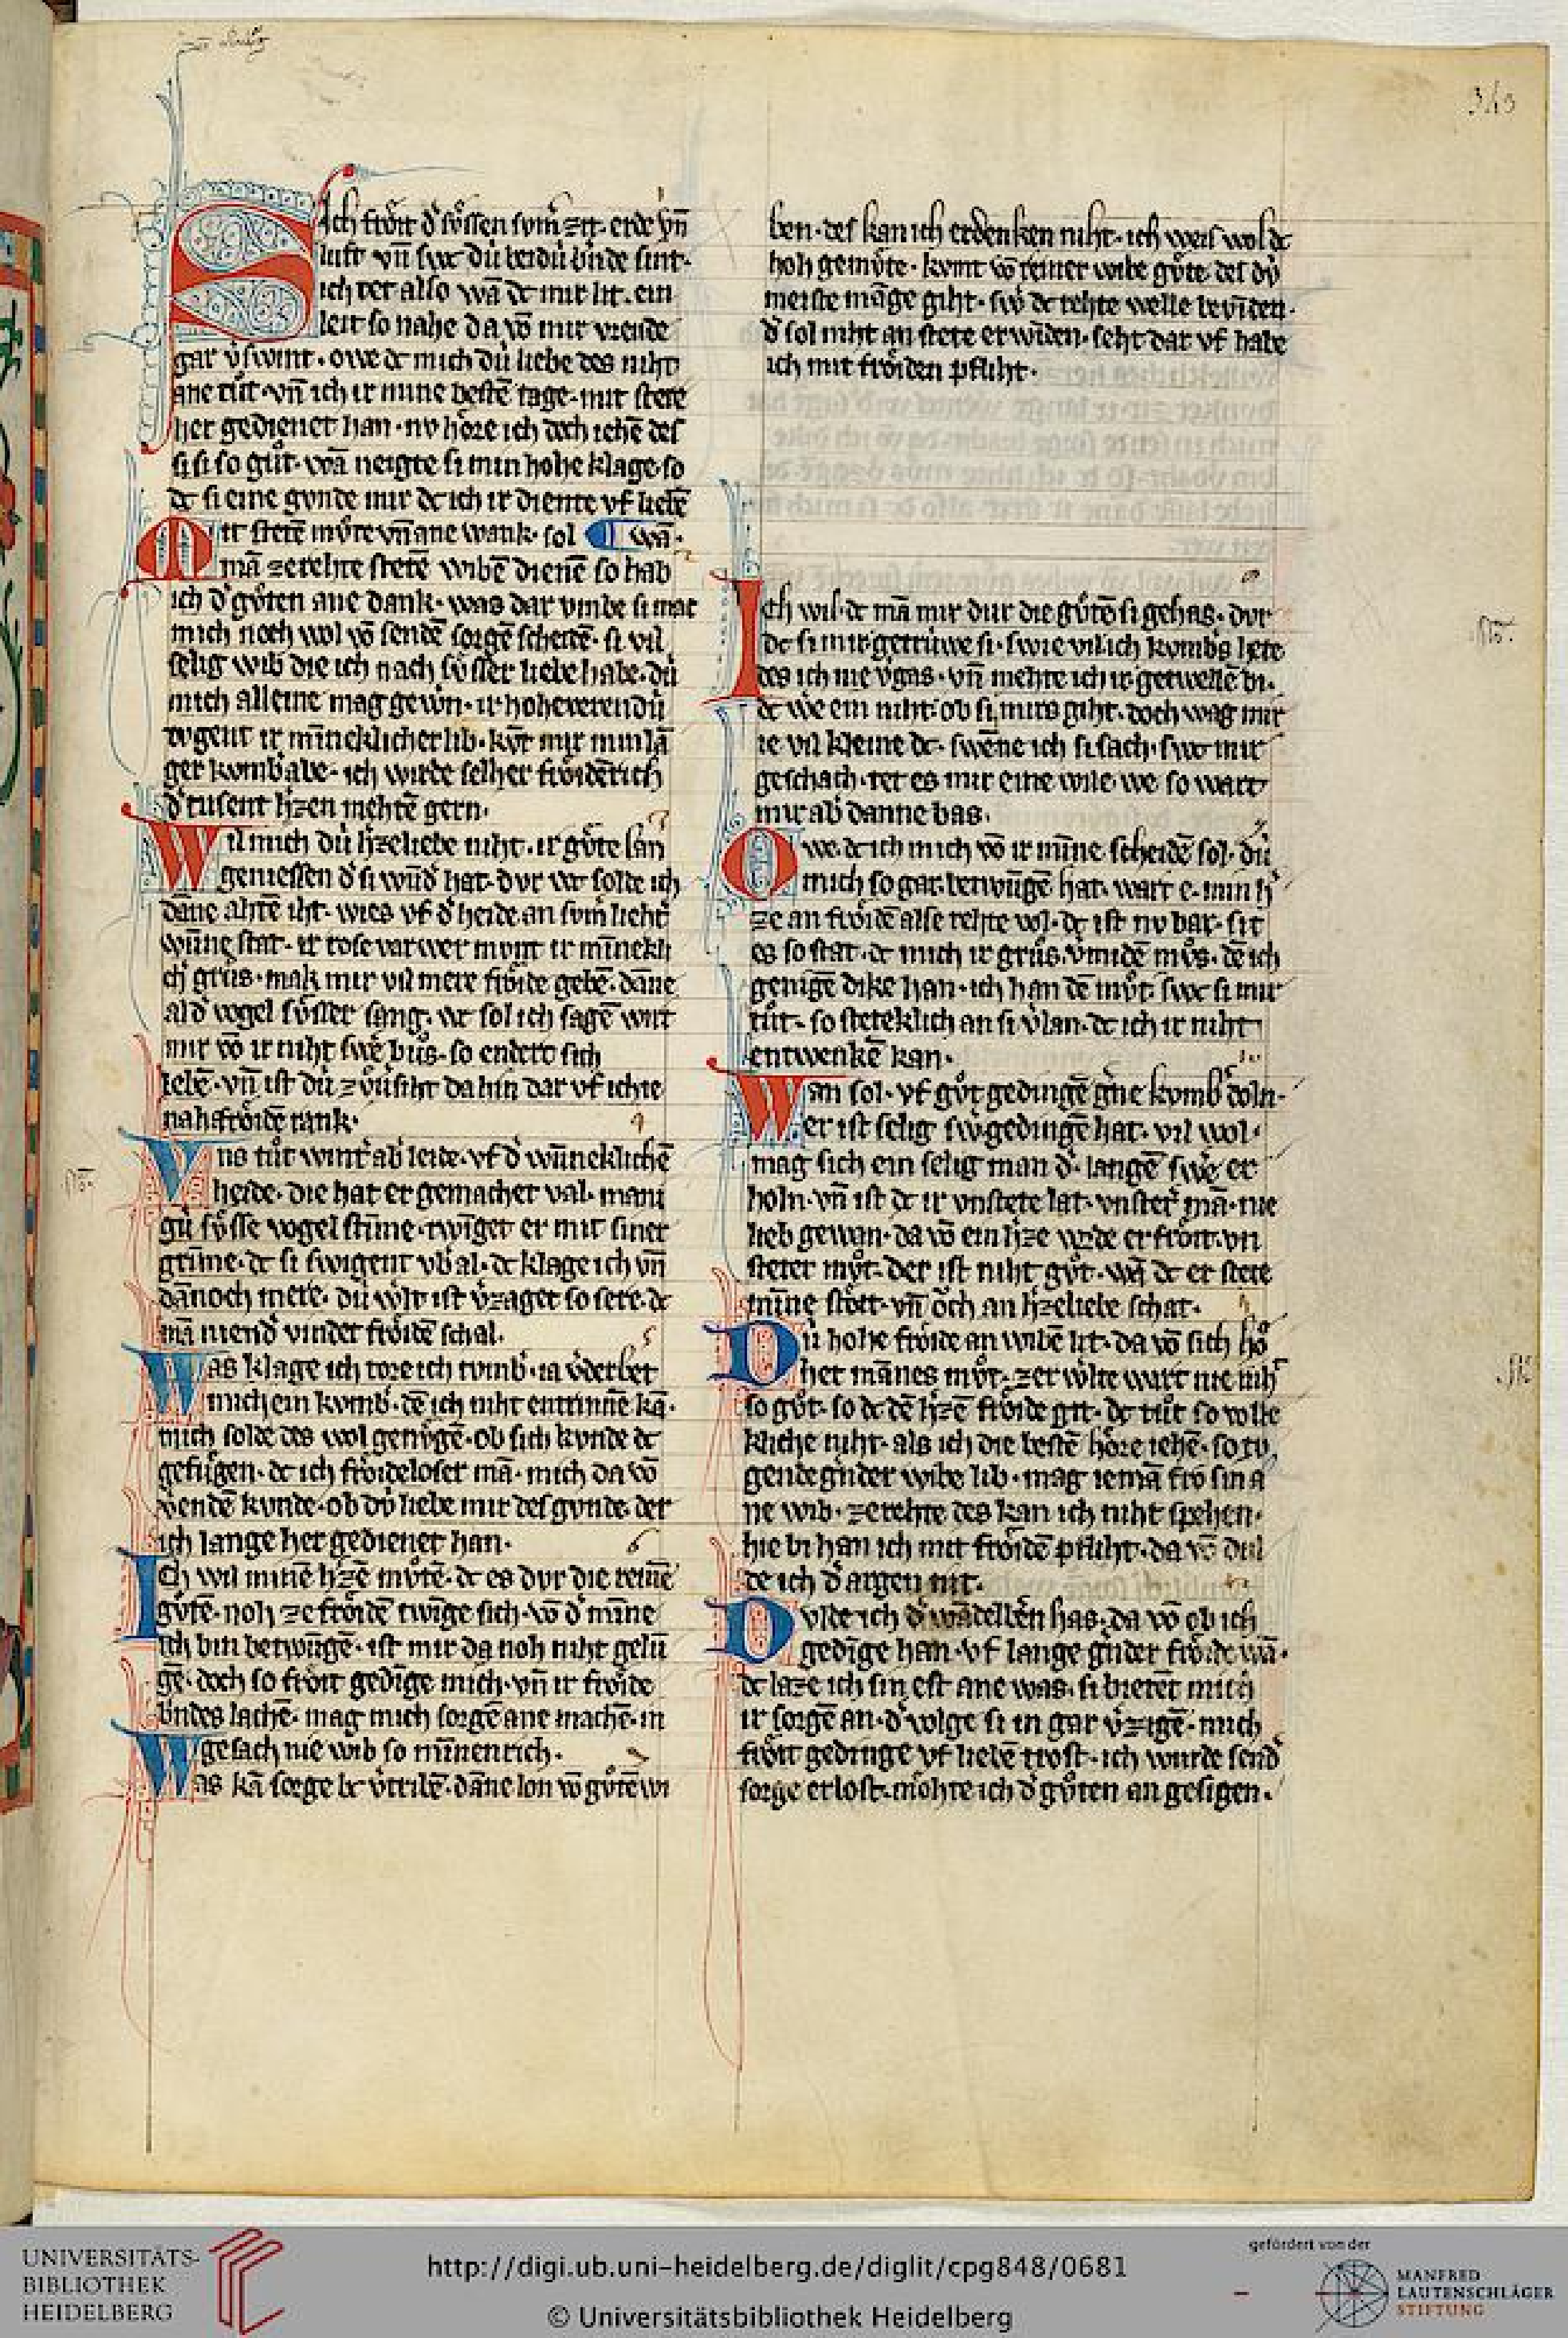 343
Sich froͤit d͛ ſuͤſſen ſum͛ zit· erde vn̄
luft vn̄ ſwc du̍ beidu̍ bu̍nde ſint·
ich tet alſo wā dc mir lit· ein
leit ſo nahe da vō mir vreude
gar v͛ſwint· owe dc mich du̍ liebe des niht
ane tuͦt· vn̄ ich ir mine beſtē tage· mit ſtete
her gedienet han· nv hoͤre ich doch iehē deſ
ſi ſi ſo guͦt· wā neigte ſi min hohe klage· ſo
dc ſi eine gvnde mir dc ich ir diente vf liebē
Mit ſtetē mvͦte vn̄ ane wank· ſol ¶ wā·
mā ze rehte ſtetē wibē dienē ſo hab
ich d͛ guͦten ane dank· was dar vmbe ſi mac
mich noch wol vō ſendē ſorgē ſcheidē· ſi vil
ſelig wib die ich nach ſuͤſſer liebe habe· du̍
mich alleine mag gew̄n· ir hohe w͛endu̍
tvgent ir mīneklicher lib· ku̍rt mir min lā
ger komb͛ abe· ich wirde ſelher froͤidē rich
d͛ tuſent h͛zen mehtē gern·
Wil mich du̍ h͛zeliebe niht· ir guͤte lan
genieſſen d͛ ſi wūd͛ hat· dvr wc ſolde ich
dāne ahtē iht· wies vf d͛ heide an ſum͛ lieht͛
wūne ſtat· ir roſevarwer mvnt ir mīnekli
ch͛ gruͦs· mak mir vil mere froͤide gebē· dāne
al d͛ vogel ſuͤſſer ſang· wc ſol ich ſagē wirt
mir vō ir niht ſwe͛ buͦs· ſo endert ſich
lebē· vn̄ iſt du̍ zvͦu͛ſiht da hin dar vf ich ie
nah froͤidē rank·
Vns tuͦt wint͛ ab͛ leide· vf d͛ wūneklichē
heide· die hat er gemachet val· mani
gu̍ ſuͤſſe vogel ſtīme· twīget er mit ſiner
grīme· dc ſi ſwigent vb͛ al· dc klage ich vn̄
dānoch mere· du̍ w͛lt iſt v͛zaget ſo ſere· dc
mā niend͛ vindet froͤidē ſchal·
Was klage ich tore ich tvmb͛· ia v͛derbet
mich ein kvmb͛· dē ich niht entrinnē kā·
mich ſolde des wol genvͤgē· ob ſich kvnde dc
gefuͤgen· dc ich froͤideloſer mā· mich da vō
wendē kvnde· ob dv̍ liebe mir deſ gvnde· der
ich lange her gedienet han·
Ich wil minē h͛zē mvͦtē· dc es dvr die reinē
guͦtē· noh ze froͤidē twīge ſich· vō d͛ mīne
ich bin betwūgē· iſt mir da noh niht gelū
gē· doch ſo froͤit gedīge mich· vn̄ ir froͤide
bn̄des lachē· mag mich ſorgē ane machē· in
geſach nie wib ſo minnenrich·
Was kā ſorge bc v͛tribē· dāne lon vō guͦtē wi
ben· deſ kan ich erdenken niht· ich weiſ wol dc
hoh gemvͤte· kvmt vō reiner wibe guͤte· deſ dv̍
meiſte mānge giht· ſw͛ dc rehte welle bevīden·
d͛ ſol niht an ſtete erwīden· ſeht dar vf habe
ich mit froͤiden pfliht·
Ich wil dc mā mir dur die guͦtē ſi gehas· dvr
dc ſi mir getru̍we ſi· ſwie vil ich kvmb͛s lete
des ich nie v͛gas· vn̄ mehte ich ir getwellē bi·
dc we͛ ein niht· ob ſi mirs giht· doch wag mir
ie vil kleine dc· ſwēne ich ſi ſach· ſwc mir
geſchach· tet es mir eine wile we· ſo wart
mir ab͛ danne bas·
Owe dc ich mich vō ir mīne ſcheidē ſol· du̍
mich ſo gar betwūgē hat· wart e· min h͛
ze an froͤidē alſe rehte vol· dc iſt nv bar· ſit
es ſo ſtat· dc mich ir gruͦs v͛midē mvͦs· dē ich
genigē dike han· ich han dē mvͦt· ſwc ſi mir
tuͦt· ſo ſteteklich an ſi v͛lan· dc ich ir niht
entwenkē kan·
Wan ſol· vf guͦt gedingē g͛ne kvmb͛ doln·
er iſt ſelig ſw͛ gedingē hat· vil wol
mag ſich ein ſelig man d͛ langē ſwe͛ er
holn· vn̄ iſt dc ir vnſtete lat· vnſtet͛ mā· nie
lieb gewan· da vō ein h͛ze w͛de erfroͤit· vn
ſteter mvͦt· der iſt niht guͦt· wā dc er ſtete
mīne ſtoͤrt· vn̄ oͮch an h͛zeliebe ſchat·
Du̍ hohe froͤide an wibē lit· da vō ſich hoͤ
het mānes mvͦt· zer w͛lte wart nie niht
ſo guͦt· ſo dc dē h͛zē froͤide git· dc tuͦt ſo volle
kliche niht· als ich die beſtē hoͤre iehē· ſo tv
gende g͛nder wibe lib· mag iemā fro ſin a
ne wib· ze rehte des kan ich niht ſpehen·
hie bi han ich mit froͤidē pfliht· da vō dul
de ich d͛ argen nit·
Dvlde ich d͛ wādelb͛en has· da vō ob ich
gedīge han· vf lange g͛nder froͤide wā·
dc laze ich ſin eſt ane was· ſi bietēt mich
ir ſorgē an· d͛ volge ſi in gar v͛zigē· mich
froͤit gedinge vf liebē troſt· ich wurde ſend͛
ſorge erloſt· moͤhte ich d͛ guͦten an geſigen·
UNIVERSITÄTS-
BIBLIOTHEK
HEIDELBERG
http://digi.ub.uni-heidelberg.de/diglit/cpg848/0681
© Universitätsbibliothek Heidelberg
gefördert von der
MANFRED
LAUTENSCHLÄGER
STIFTUNG